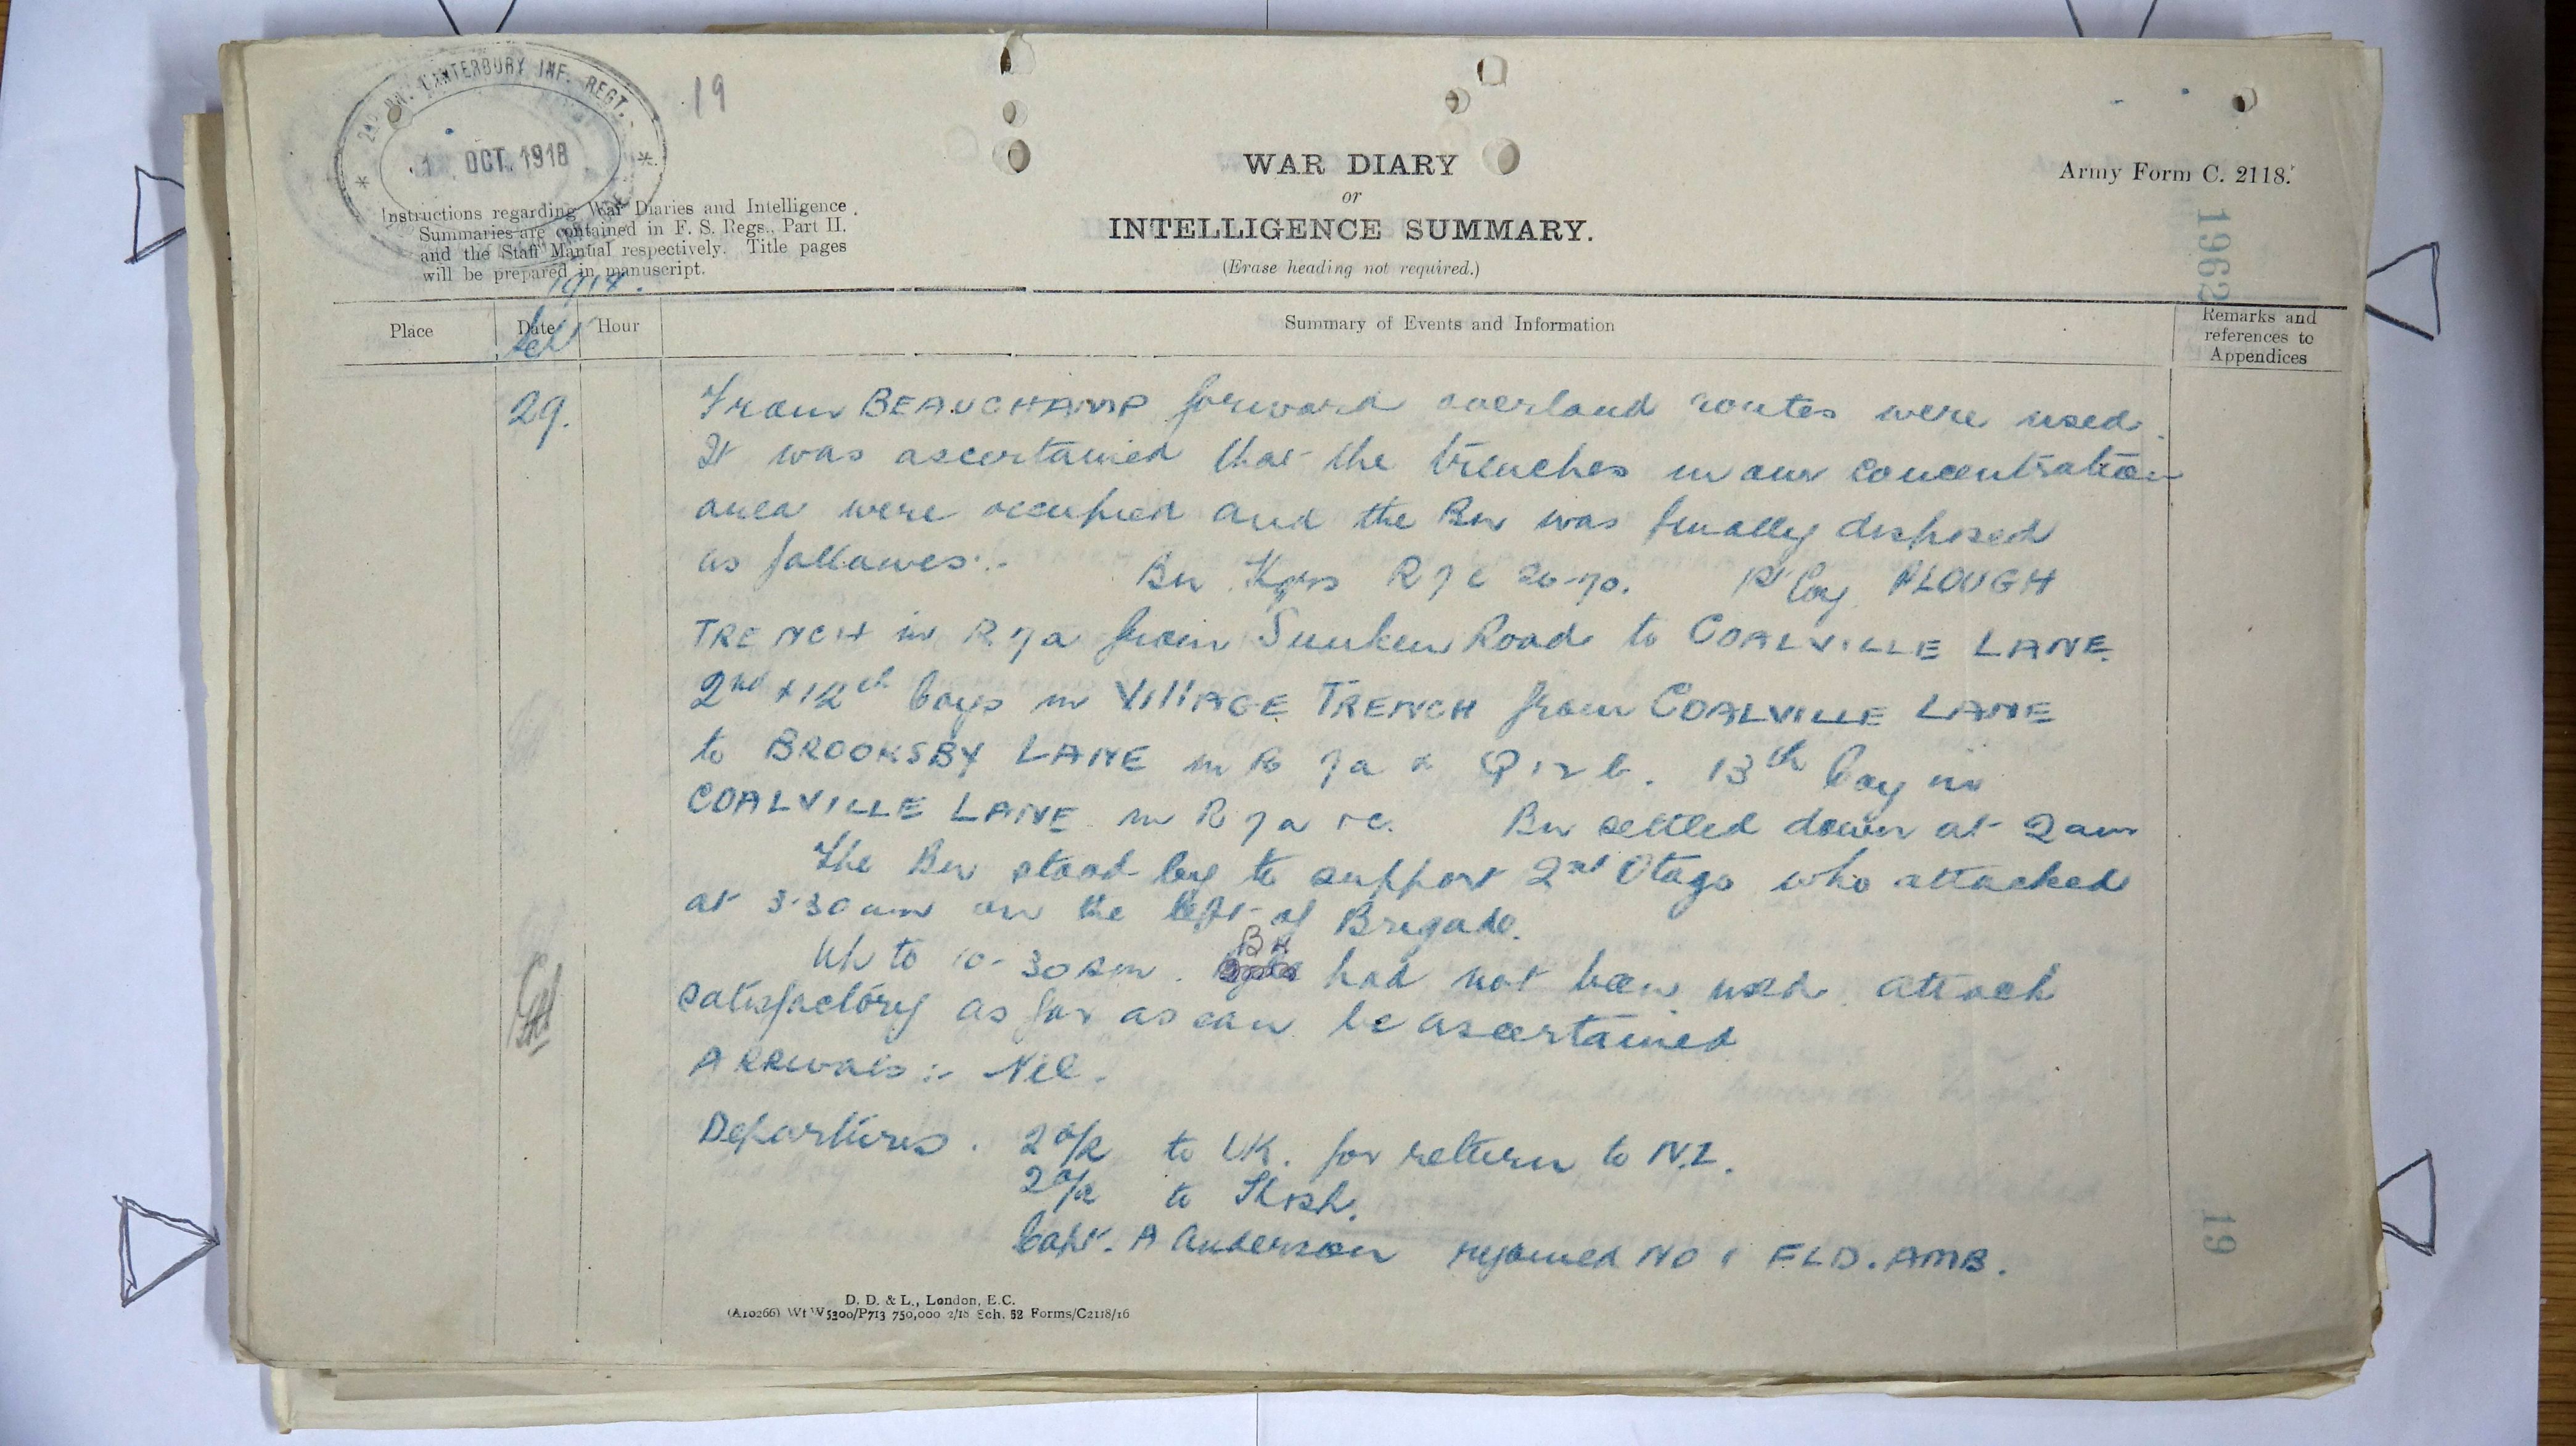 2ND BN. CANTERBURY INF. REGT.
1 OCT. 1918
19
WAR DIARY
or
INTELLIGENCE SUMMARY.
(Erase heading not required.)
Army Form C. 2118.
1962
Instructions regarding War Diaries and Intelligence
Summaries are contained in F. S. Regs., Part II.
and the Staff Manual respectively. Title pages
will be prepared in manuscript.
1918.
Place
Date
Hour
Summary of Events and Information
Remarks and
references to
Appendices
29.
From BEAUCHAMP forward overland routes were used.
It was ascertained that the trenches in our concentration
area were occupied and the Bn was finally disposed
as follows:- Bn Hqrs R7c 20-70. 1st Coy PLOUGH
TRENCH in R7a from Sunken Road to COALVILLE LANE.
2nd & 12th Coys in VILLAGE TRENCH from COALVILLE LANE
to BROOKSBY LANE in R 7a & Q12b. 13th Coy in
COALVILLE LANE in R7a & c. Bn settled down at 2 am
The Bn stood by to support 2nd Otago who attacked
at 3.30 am on the left of Brigade.
Up to 10-30 am. Bn had not been used. Attack
satisfactory as far as can be ascertained
ARRIVALS:- Nil.
Departures. 2 O/R to UK. for return to N.Z.
2 O/R to
Capt. A Anderson rejoined No 1 FLD. AMB.
19
D. D. & L., London, E.C.
(A10266) Wt W5300/P713 750,000 2/18 Sch. 52 Forms/C2118/16